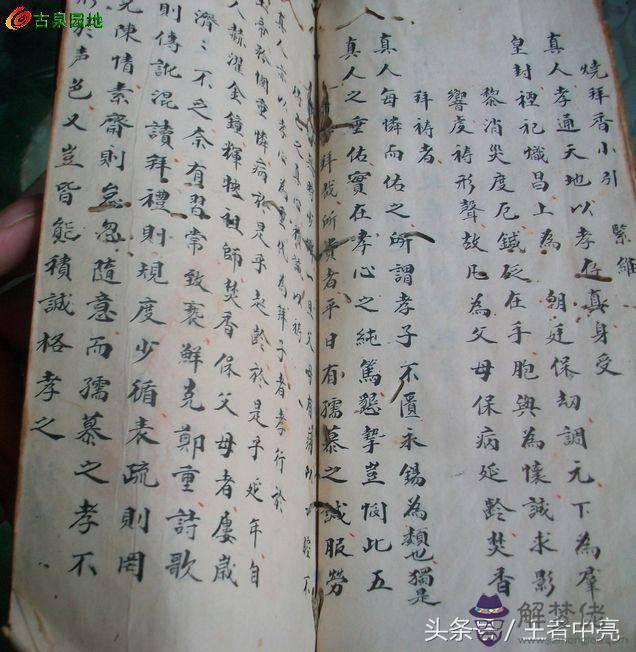 古泉园地
燒拜香小引 緊維
真人孝通天地以孝存真身受
皇封禋祀熾昌上為 朝廷保劫調元下為羣
黎消災度厄鍼砭在手胞與為懷誠求影
響虔祷形聲故凡為父母保病延齡焚香
拜祷者
真人每憐而佑之所謂孝子不匱永錫為類也獨是
真人之垂佑實在孝心之純篤懇摯豈惘此五
拜哉所貴者平日有孺慕之誠服勞
真人 以孝心為重代為拜子者孝行於
憐病於是乎起齡於是乎延年自
人赫濯金鐘輝映祖師焚香保父母者屢歲
濟濟不乏奈有習常致褻鮮克鄭重詩歌
則傳訛混讀拜禮則規度少循表疏則罔
陳情素齋則怠忽隨意而孺慕之孝不
於声色又豈皆能積誠格孝之
头条号 / 王者中亮
解梦佬